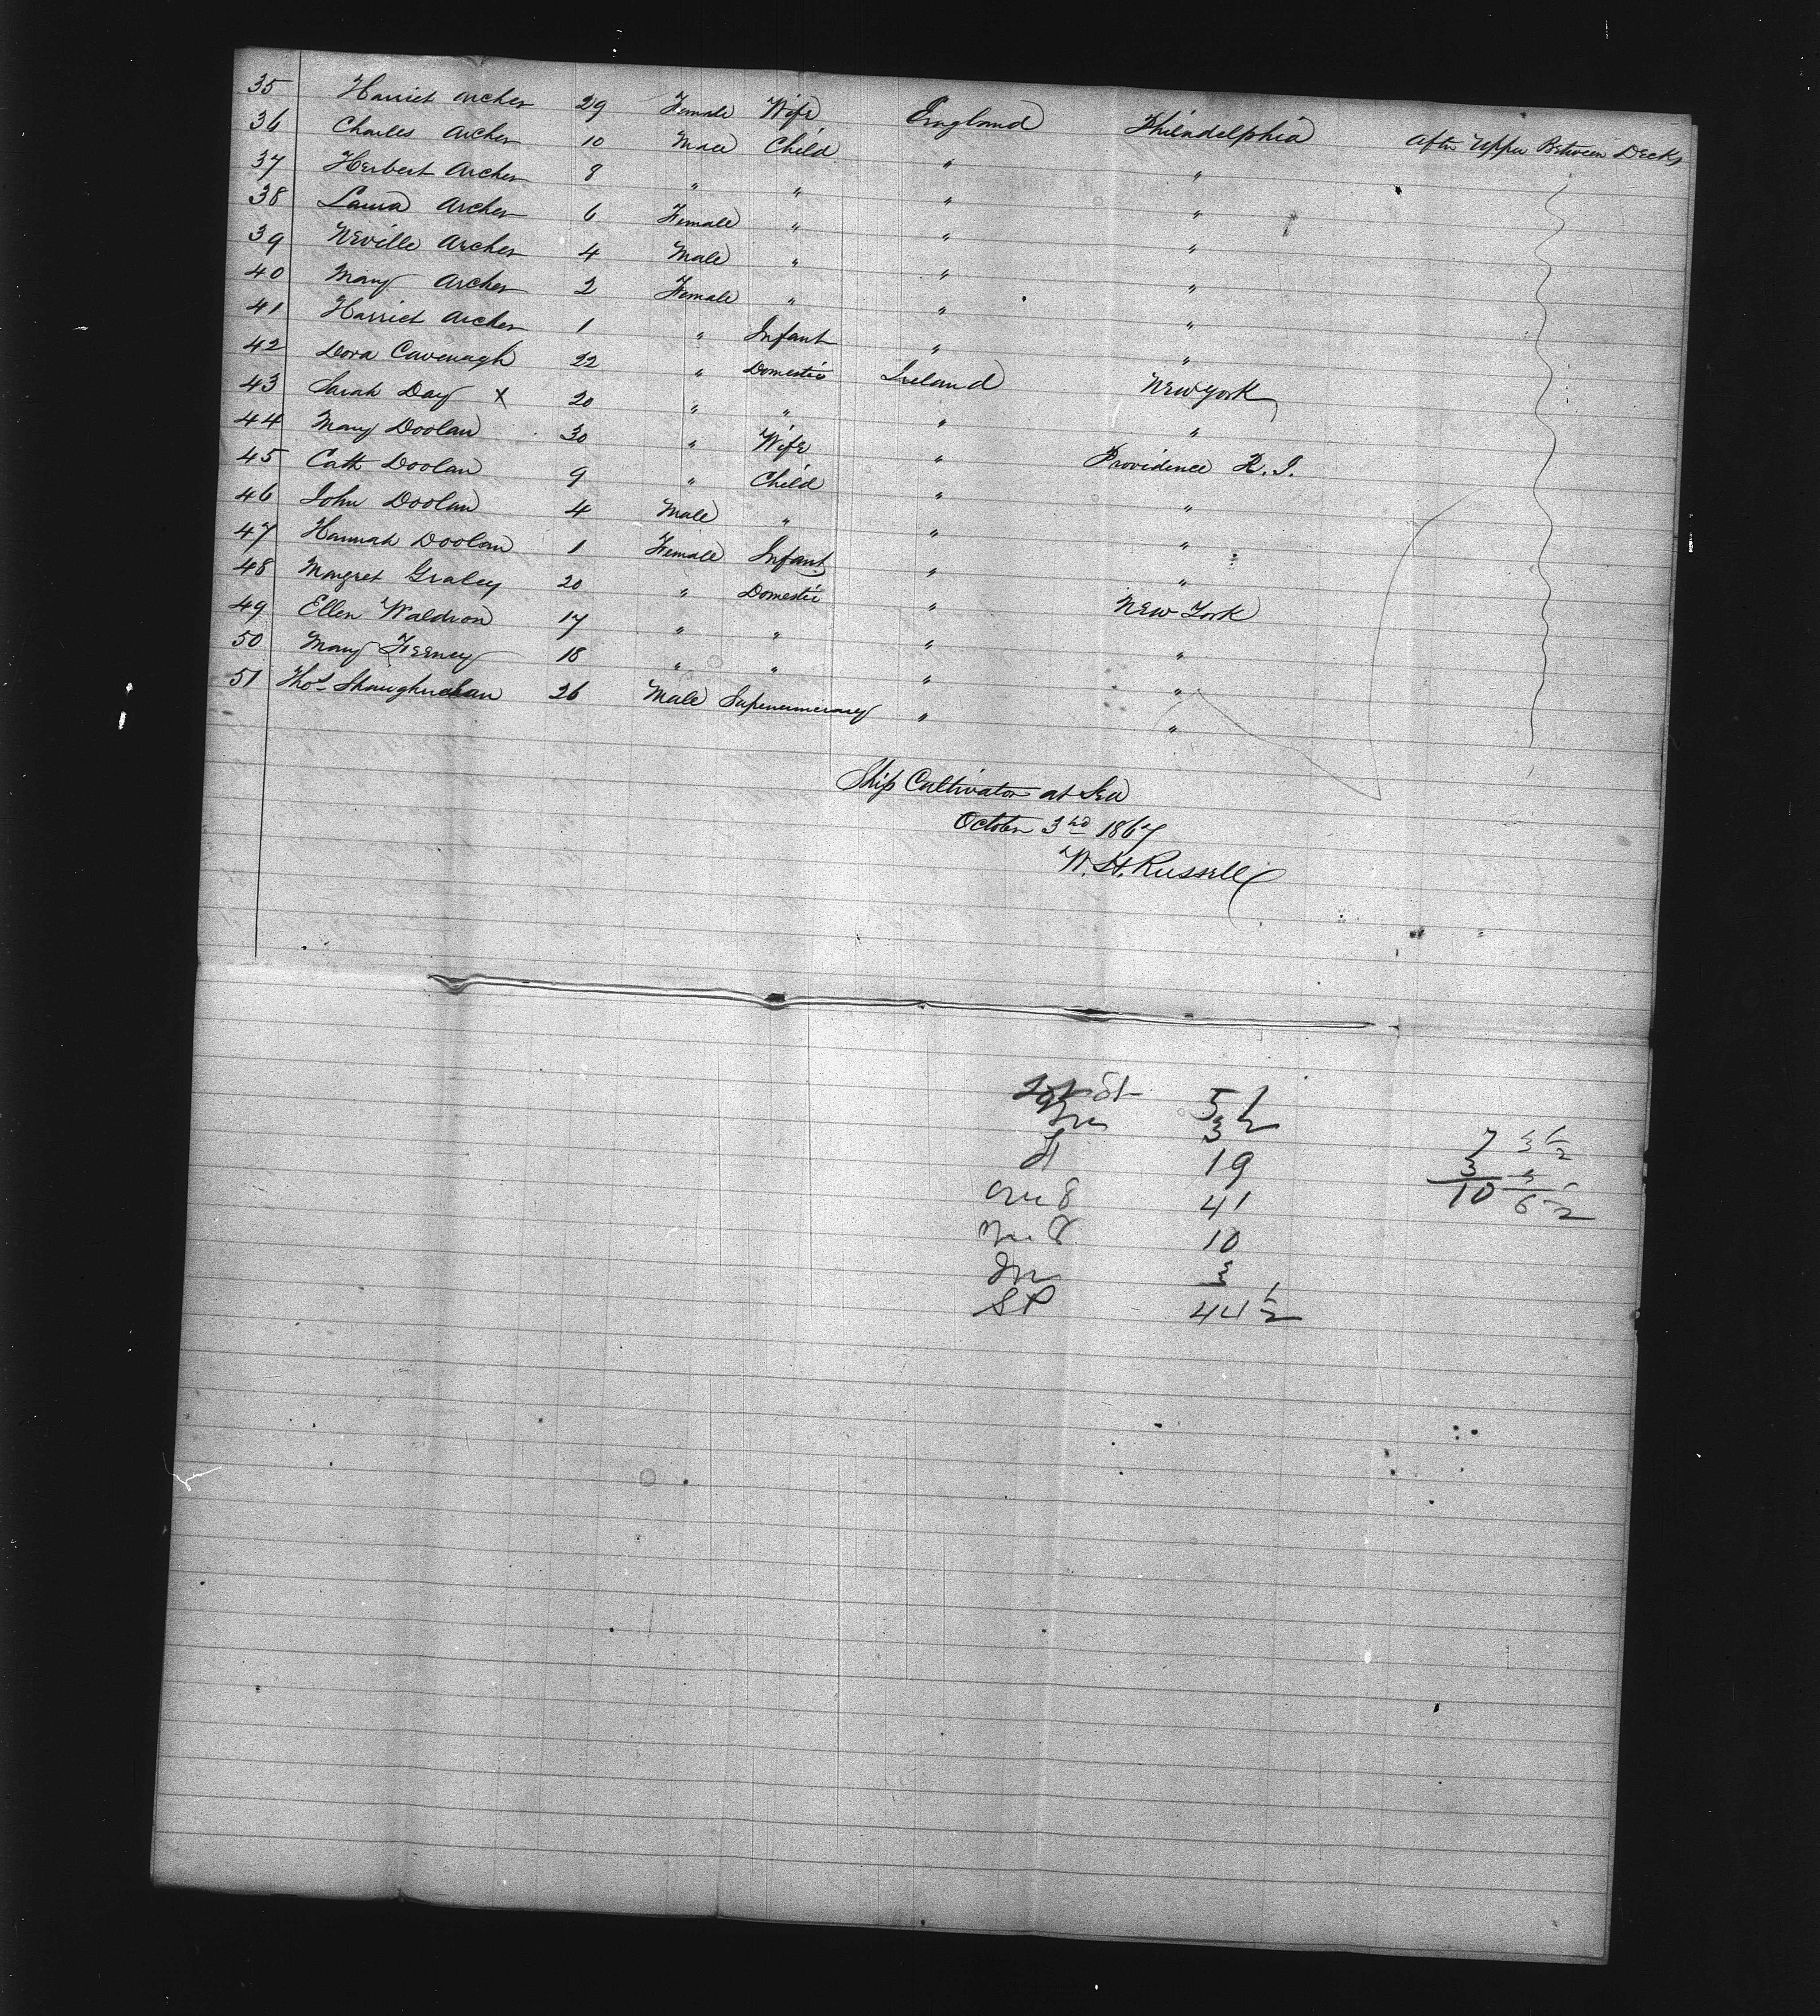 35 Harriet Archer 29 Female Wife England Philadelphia After Upper Between Decks
36 Charles Archer 10 Male Child " "
37 Herbert Archer 8 " " " "
38 Laura Archer 6 Female " " "
39 Neville Archer 4 Male " " "
40 Mary Archer 2 Female " " "
41 Harriet Archer 1 " Infant " "
42 Dora Cavenagh 22 " Domestic Ireland New York
43 Sarah Day X 20 " " " "
44 Mary Doolan 30 " Wife " Providence R. I.
45 Cath Doolan 9 " Child " "
46 John Doolan 4 Male " " "
47 Hannah Doolan 1 Female Infant " "
48 Margret Graley 20 " Domestic " New York
49 Ellen Waldron 17 " " " "
50 Mary Feeney 18 " " " "
51 Thos Shaughnehan 26 Male Supernumerary " "
Ship Cultivator at Sea
October 3rd 1867
W. H. Russell
51
3 1/2
19
41
10
3
SP 44 1/2
7 3 1/2
3 3
10 6 1/2